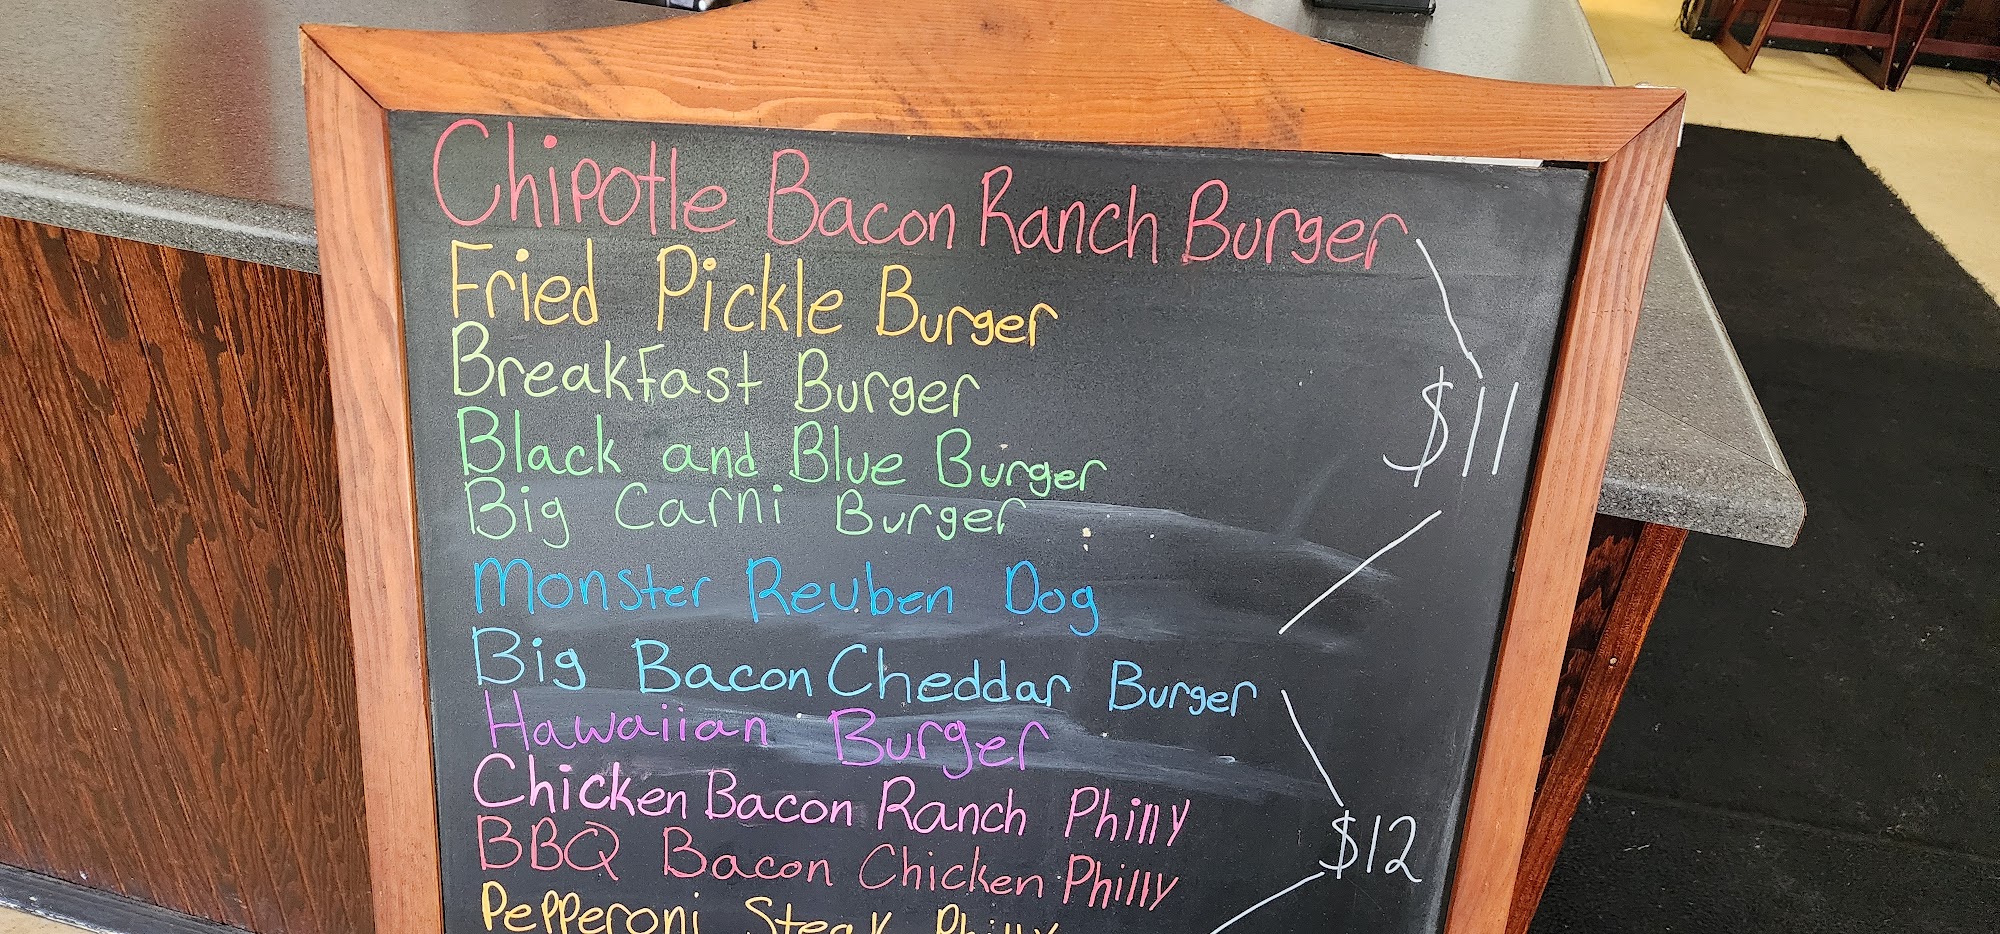 Chipotle Bacon Ranch Burger
Fried Pickle Burger
Breakfast Burger
$11
Black and Blue Burger
Big Carni Burger
Monster Reuben Dog
Big Bacon Cheddar Burger
Hawaiian Burger
Chicken Bacon Ranch Philly
$12
BBQ Bacon Chicken Philly
Pepperoni Steak Philly